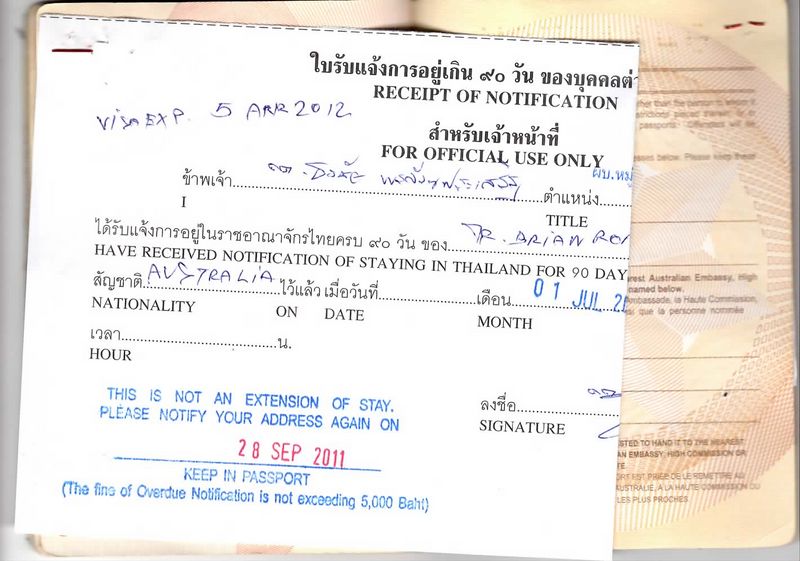 ใบรับแจ้งการอยู่เกิน ๙๐ วัน ของบุคคลต่า
RECEIPT OF NOTIFICATION
VISA EXP. 5 APR 2012
สำหรับเจ้าหน้าที่
FOR OFFICIAL USE ONLY
ข้าพเจ้า ตำแหน่ง ผบ.หมู่
I TITLE
ได้รับแจ้งการอยู่ในราชอาณาจักรไทยครบ ๙๐ วัน ของ
HAVE RECEIVED NOTIFICATION OF STAYING IN THAILAND FOR 90 DAY
สัญชาติ AUSTRALIA ไว้แล้ว เมื่อวันที่ เดือน 01 JUL
NATIONALITY ON DATE MONTH
เวลา น.
HOUR
THIS IS NOT AN EXTENSION OF STAY.
PLEASE NOTIFY YOUR ADDRESS AGAIN ON
28 SEP 2011
KEEP IN PASSPORT
(The fine of Overdue Notification is not exceeding 5,000 Baht)
ลงชื่อ
SIGNATURE
her than the person to whom it
passports. Offenders will be
below. Please keep these
rest Australian Embassy, High
named below.
bassade, la Haute Commission,
si que la personne nommée
STED TO HAND IT TO THE NEAREST
AN EMBASSY, HIGH COMMISSION OR
ORT EST PRIÉ DE LE REMETTRE AU
AUSTRALIE, À LA HAUTE COMMISSION OU
LES PLUS PROCHES.